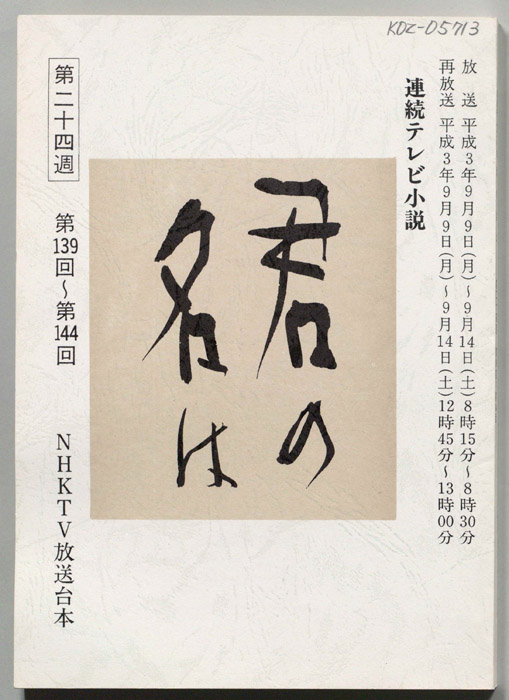 KDZ-05713
放送 平成3年9月9日(月)～9月14日(土)8時15分～8時30分
再放送 平成3年9月9日(月)～9月14日(土)12時45分～13時00分
連続テレビ小説
君の
名は
第二十四週
第139回～第144回
NHKTV放送台本